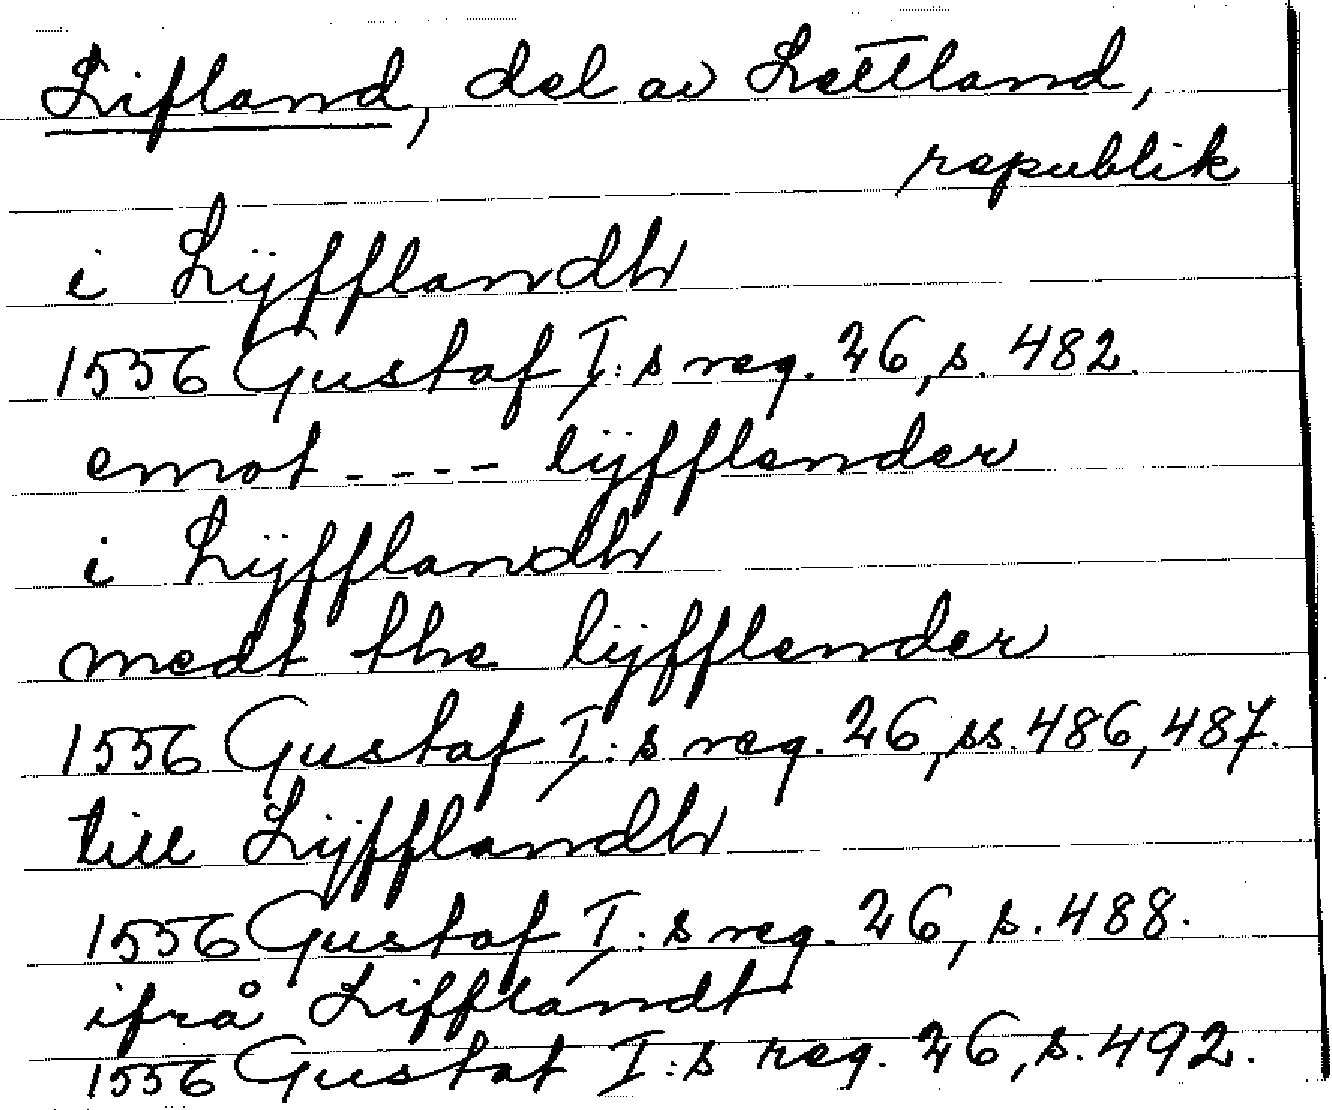 Lifland, del av Lettland,
republik
i Lÿfflandh
1556 Gustaf I:s reg. 26, s. 482.
emot ---- lÿfflender
i Lÿfflandh
medt the lÿfflender
1556 Gustaf I:s reg. 26, ss. 486, 487.
till Lÿfflandh
1556 Gustaf I:s reg. 26, s. 488.
ifrå Lifflandt
1556 Gustaf I:s reg. 26, s. 492.